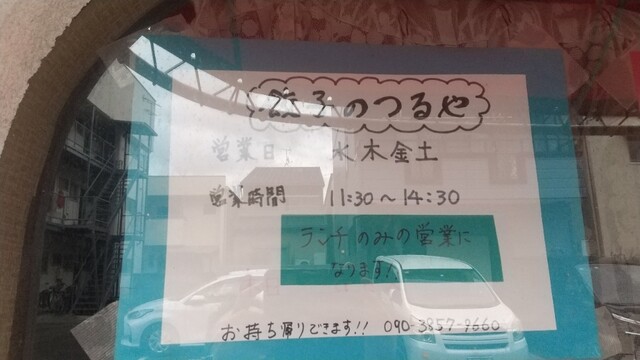 餃子のつるや
営業日 水木金土
営業時間 11:30～14:30
ランチのみの営業に
なります!
お持ち帰りできます!! 090-3857-9660